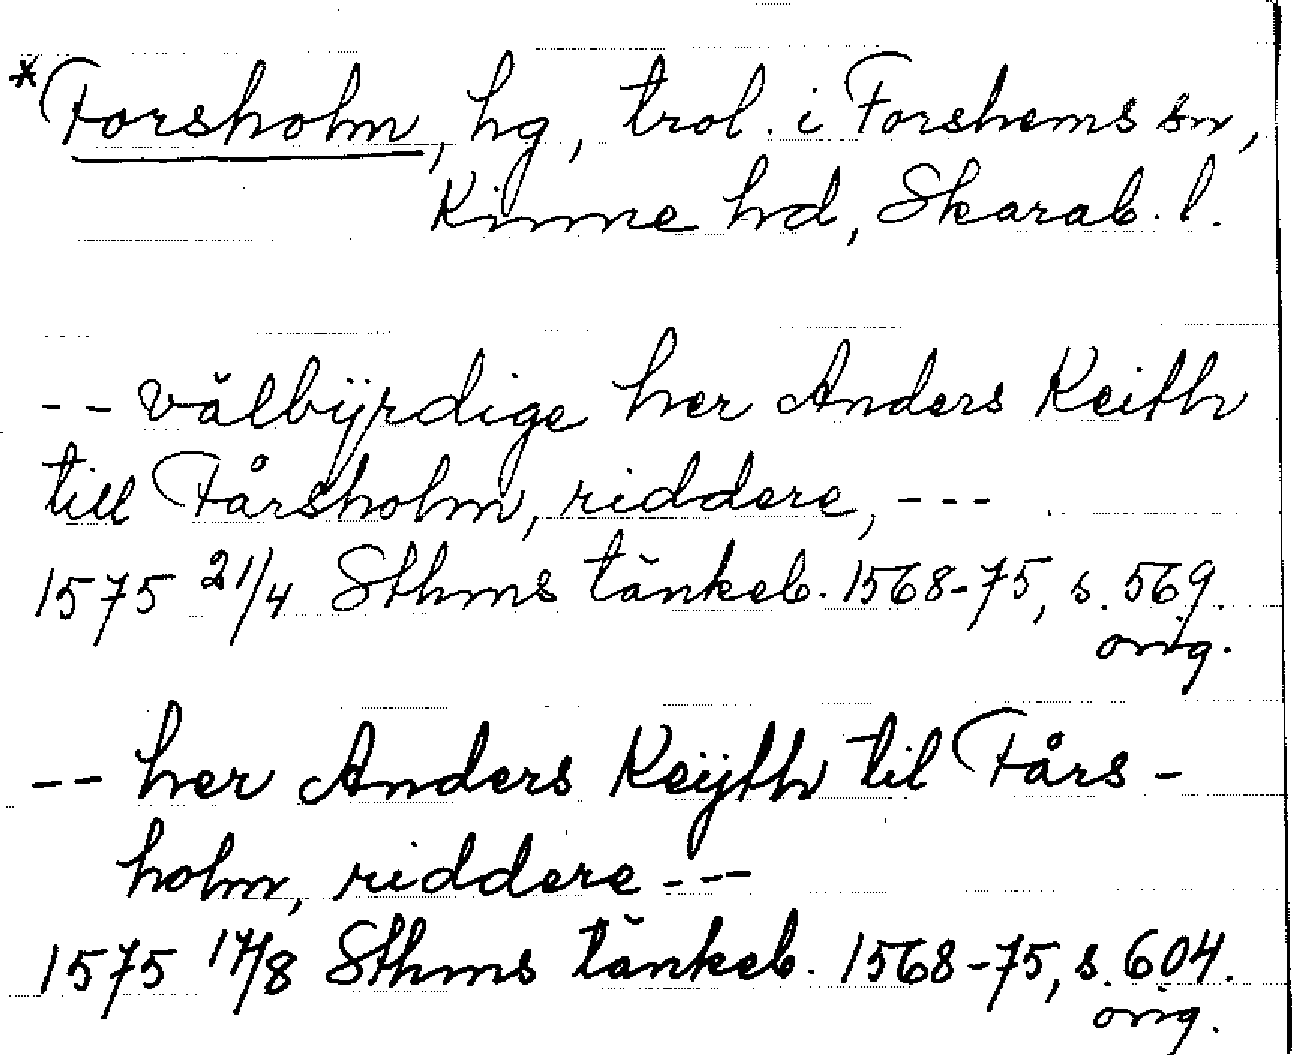 *Forsholm, hg, trol. i Forshems sn,
Kinne hd, Skarab. l.
-- välbÿrdige her Anders Keith
till Fårsholm, riddere, ---
1575 21/4 Sthms tänkeb. 1568-75, s. 569.
orig.
-- her Anders Keÿth til Fårs-
holm, riddere ---
1575 17/8 Sthms tänkeb. 1568-75, s. 604.
orig.